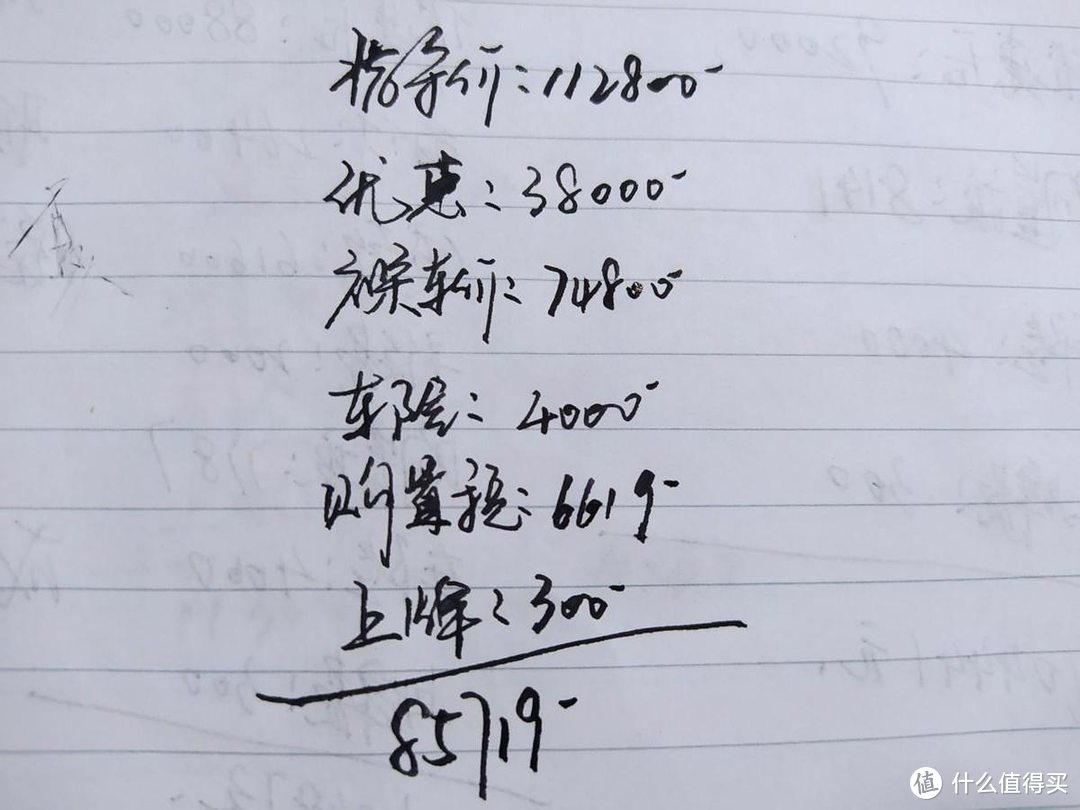 指导价:112800-
优惠:38000-
裸车价:74800-
车险:4000-
购置税:6619-
上牌:300-
85719-
值 什么值得买